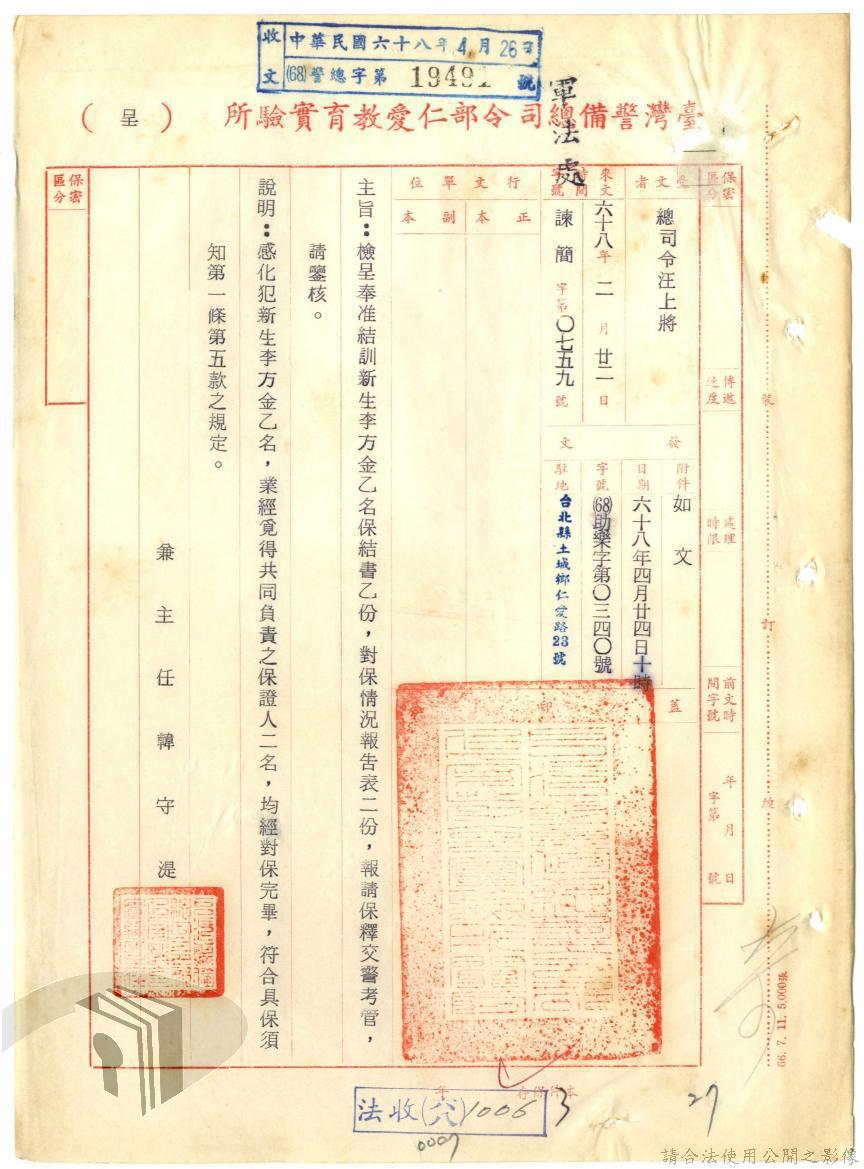 收文
中華民國六十八年4月26日
(68)警總字第19491號
臺灣警備總司令部仁愛教育實驗所(呈)
軍法處
保密區分
受文者
總司令汪上將
來文
時間
六十八年二月廿二日
字號
諫簡字第〇七五九號
行文單位
正本
副本
傳遞速度
處理時限
前文時間字號
年月日
字第號
發文
附件
如文
日期
六十八年四月廿四日十時
字號
(68)助樂字第〇三四〇號
駐地
台北縣土城鄉仁愛路23號
蓋印
主旨：檢呈奉准結訓新生李方金乙名保結書乙份，對保情況報告表二份，報請保釋交警考管，
請鑒核。
說明：感化犯新生李方金乙名，業經覓得共同負責之保證人二名，均經對保完畢，符合具保須
知第一條第五款之規定。
兼主任韓守湜
保密區分
裝
訂
線
66.7.11.5,000張
本件保存
年
3
27
法收(六八)1006
0007
請合法使用公開之影像